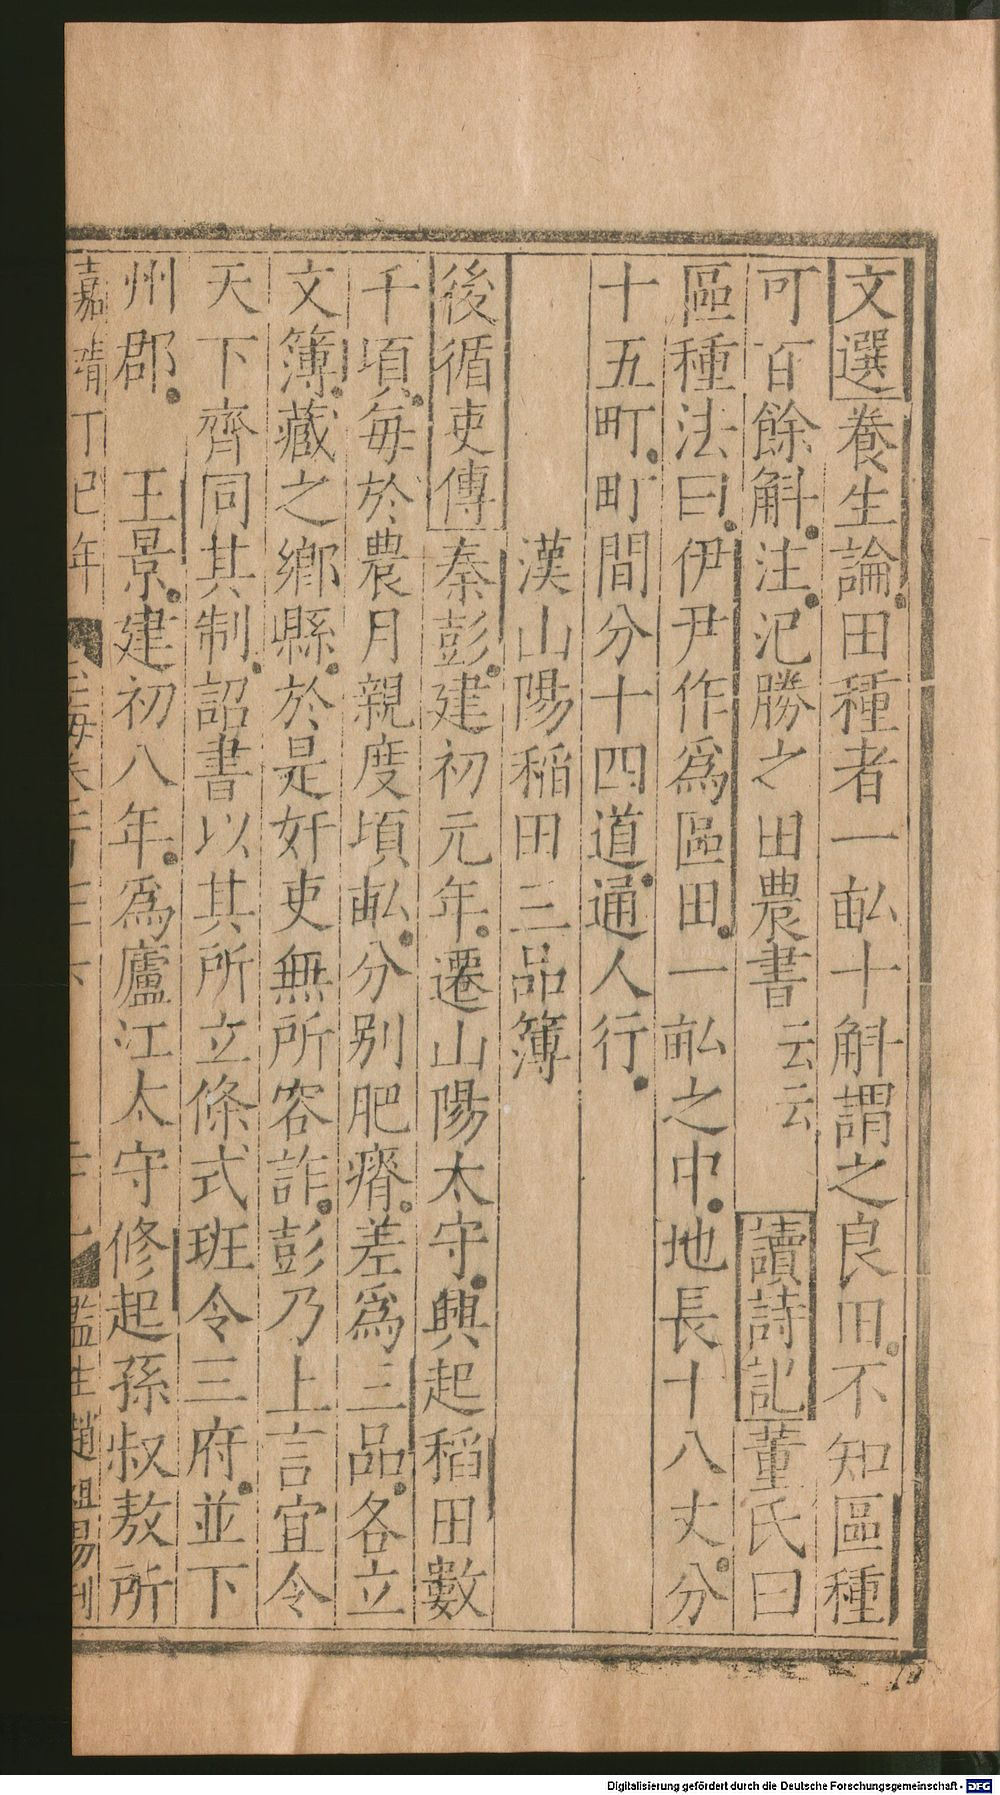 文選養生論田種者一畝十斛謂之良田不知區種
可百餘斛注氾勝之田農書云云讀詩記董氏曰
區種法曰伊尹作爲區田一畝之中地長十八丈分
十五町町間分十四道通人行
漢山陽稻田三品簿
後循吏傳秦彭建初元年遷山陽太守興起稻田數
千頃每於農月親度頃畝分别肥瘠差爲三品各立
文簿藏之鄉縣於是奸吏無所容詐彭乃上言宜令
天下齊同其制詔書以其所立條式班令三府並下
州郡王景建初八年爲廬江太守修起孫叔敖所
嘉靖丁巳年
監生趙祖易刊
Digitalisierung gefördert durch die Deutsche Forschungsgemeinschaft - DFG